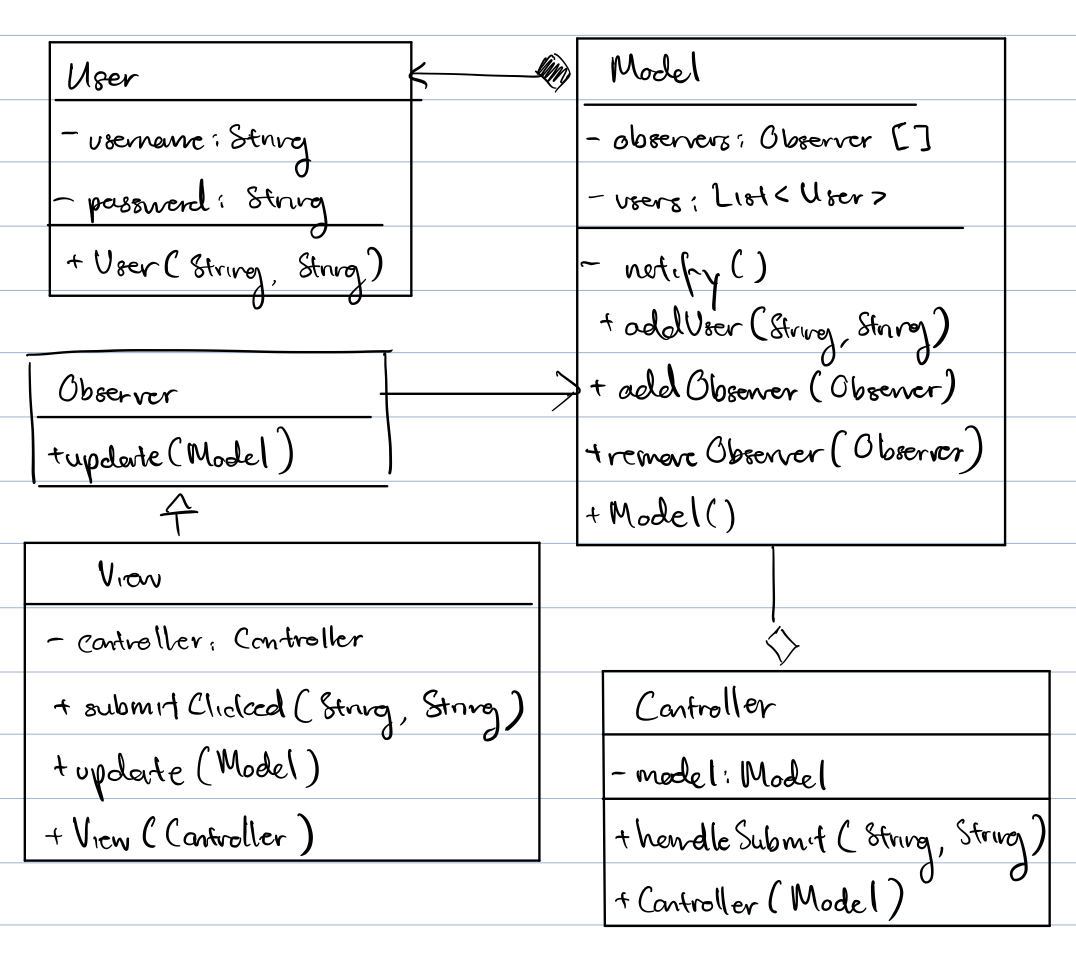 User
- username: String
- password: String
+ User(String, String)
Model
- observers: Observer []
- users: List<User>
- notify()
+ addUser(String, String)
+ addObserver(Observer)
+ removeObserver(Observer)
+ Model()
Observer
+update(Model)
View
- controller: Controller
+ submitClicked(String, String)
+ update(Model)
+ View(Controller)
Controller
- model: Model
+ handleSubmit(String, String)
+ Controller(Model)